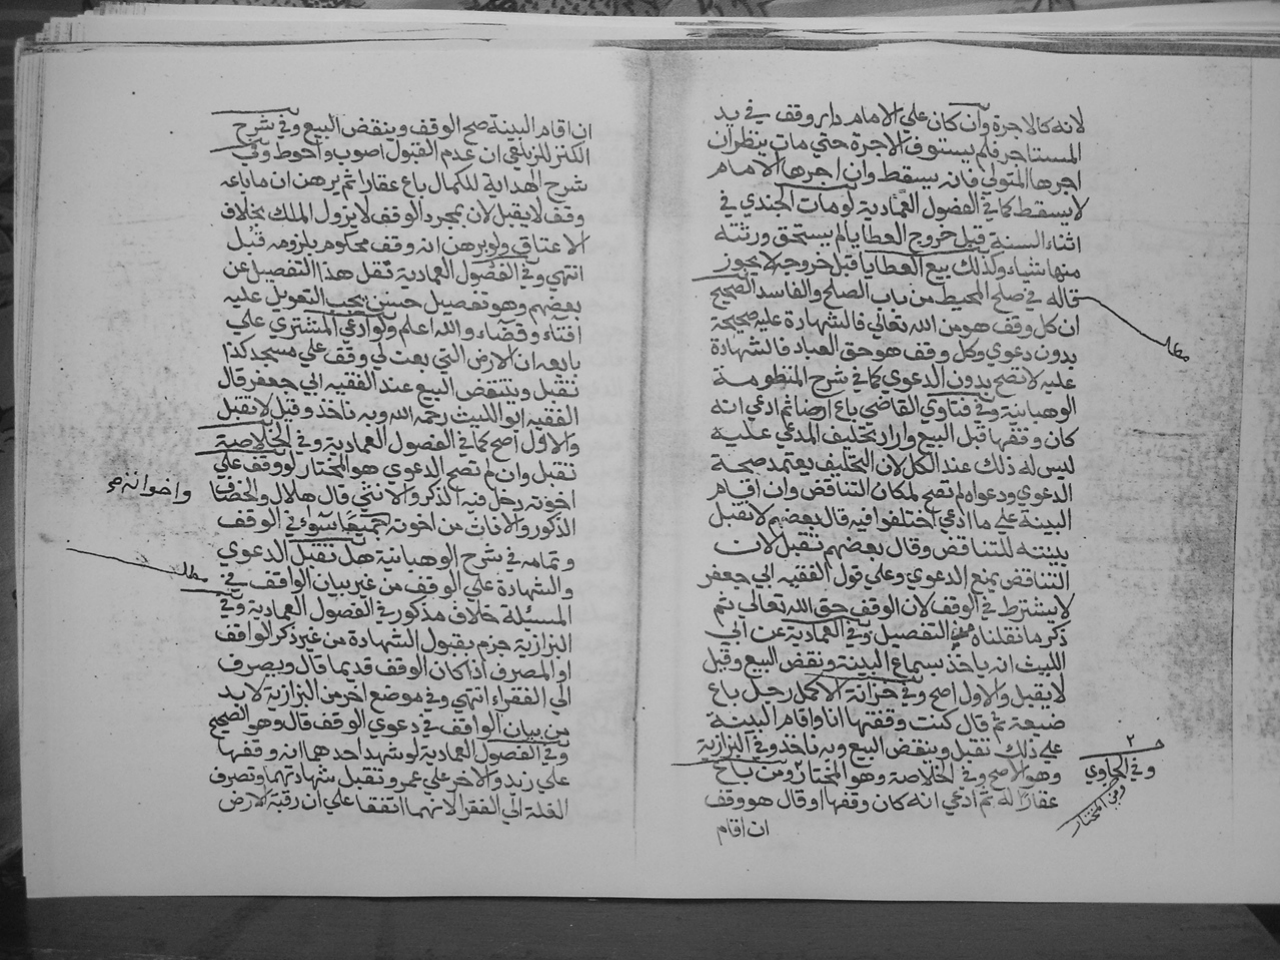 لانه كالاجرة وان كان علي الامام دار وقف في يد
المستاجر فلم يستوف الاجرة حتي مات ينظر ان
اجرها المتولي فانه يسقط وان اجرها الامام
لا يسقط كما في الفصول العمادية لو مات الجندي في
اثناء السنة قبل خروج العطايا لم يستحق ورثته
منها شياء وكذلك بيع العطايا قبل خروجه لا يجوز
قاله في صلح المحيط من باب الصلح والفاسد الصحيح
ان كل وقف هو من الله تعالي فالشهادة عليه صحيحة
بدون دعوي وكل وقف هو حق العباد فالشهادة
عليه لا تصح بدون الدعوي كما في شرح المنظومة
الوهبانية وفي فتاوي القاضي باع ارضا ثم ادعي انه
كان وقفها قبل البيع واراد تحليف المدعي عليه
ليس له ذلك عند الكل لان التحليف يعتمد صحة
الدعوي ودعواه لم تصح لمكان التناقض وان اقام
البينة علي ما ادعي اختلفوا فيه قال بعضهم لا تقبل
بينته للتناقض وقال بعضهم تقبل لان
التناقض يمنع الدعوي وعلي قول الفقيه ابي جعفر
لا يشترط في الوقف لان الوقف حق الله تعالي ثم
ذكر ما نقلناه من التفصيل وفي العمادية عن ابي
الليث انه ياخذ بسماع البينة ونقض البيع وقيل
لا يقبل والاول اصح وفي خزانة الاكمل رجل باع
ضيعة ثم قال كنت وقفتها انا واقام البينة
علي ذلك تقبل وينقض البيع وبه ناخذ وفي البزازية
وهو الاصح وفي الخلاصة وهو المختار ٢ ومن باع
عقارا له ثم ادعي انه كان وقفها او قال هو وقف
ان اقام
مطلب
٢
وفي الحاوي
وهو المختار
ان اقام البينة صح الوقف وينقض البيع وفي شرح
الكنز للزيلعي ان عدم القبول اصوب واحوط وفي
شرح الهداية للكمال باع عقارا ثم برهن ان ما باعه
وقف لا يقبل لان بمجرد الوقف لا يزول الملك بخلاف
الاعتاق ولو برهن انه وقف محكوم بلزومه قبل
انتهي وفي الفصول العمادية نقل هذا التفصيل عن
بعضهم وهو تفصيل حسن يجب التعويل عليه
افتاء وقضاء والله اعلم ولو ادعي المشتري علي
بايعه ان الارض التي بعت لي وقف علي مسجد كذا
تقبل وينتقض البيع عند الفقيه ابي جعفر قال
الفقيه ابو الليث رحمه الله وبه ناخذ وقيل لا تقبل
والاول اصح كما في الفصول العمادية وفي الخلاصة
تقبل وان لم تصح الدعوي هو المختار لو وقف علي
اخوته دخل فيه الذكر والانثي قال هلال والخصاف
الذكور والاناث من اخوته جميعا سواء في الوقف
وتمامه في شرح الوهبانية هل تقبل الدعوي
والشهادة علي الوقف من غير بيان الواقف في
المسئلة خلاف مذكور في الفصول العمادية وفي
البزازية جزم بقبول الشهادة من غير ذكر الواقف
او المصرف اذا كان الوقف قديما قال ويصرف
الي الفقراء انتهي وفي موضع اخر من البزازية لا بد
من بيان الواقف في دعوي الوقف قال وهو الصحيح
وفي الفصول العمادية لو شهد احدهما انه وقفها
علي زيد والاخر علي عمرو تقبل شهادتهما وتصرف
الغلة الي الفقرا لانهما اتفقا علي ان رقبة الارض
واخواته صح
مطلب